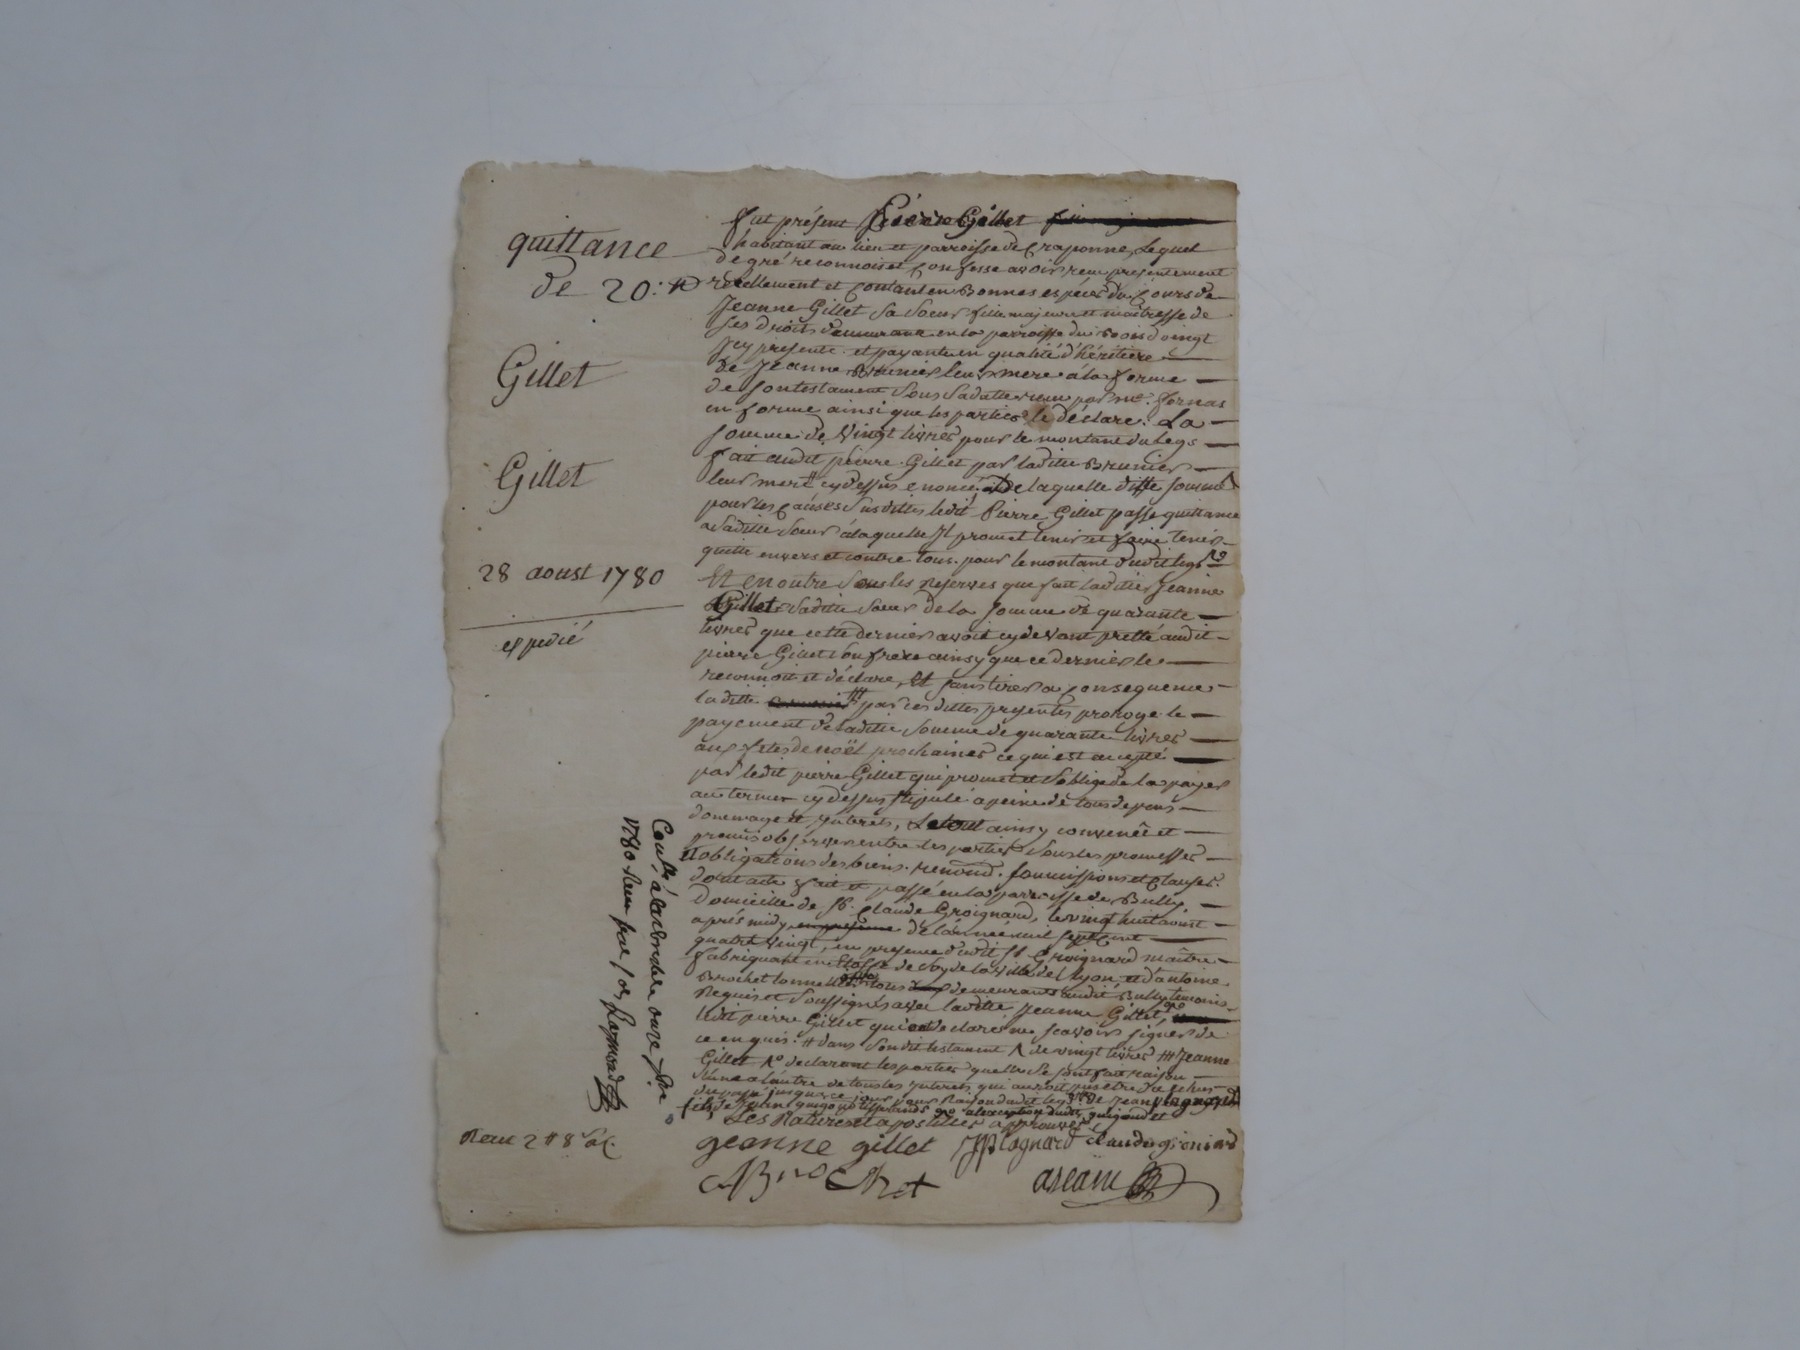 quittance
de 20: ₶
Gillet
Gillet
28 aoust 1780
expedié
fut présent Pierre Gillet
habitant au lieu et parroisse de Craponne, Lequel
de gré reconnoist et Confesse avoir reçu presentement
réellement et Contant en Bonnes espéces du Cours de
Jeanne Gillet Sa Soeur fille majeure et maitresse de
ses Droits demeurant en la parroisse du Bois d'oingt
icy presente et payante en qualité d'héritiere
de Jeanne Brunier leur mere a la forme
de son testament Sous Sa datte reçu par me. fornas
en forme ainsi que les parties le déclare: La
somme de Vingt livres pour le montant du Legs
fait audit pierre Gillet par laditte Brunier
leur mere cy dessus enoncé, De laquelle ditte somme
pour les Causes Susdittes ledit Pierre Gillet passe quittance
a Saditte Soeur a laquelle Il promet tenir et faire tenir
quitte envers et contre tous pour le montant dudit legs
Et en outre Sous les reserves que fait laditte Jeanne
Gillet Saditte Soeur de la somme de quarante
livres que cette derniere avoit cy devant pretté audit
pierre Gillet son frere ainsy que ce dernier le
reconnoit et déclare, Et sans tirer a Consequence
laditte par ces dittes presentes proroge le
payement de laditte Somme de quarante livres
aux fetes de noël prochaines ce qui est accepté
par ledit pierre Gillet qui promet et S'oblige de la payer
au terme cy dessus stipulé a peine de tous depens
dommage et Interets, Le tout ainsy convenu et
promis observer entre les parties Sous les promesses
et obligations des biens. renond. soumissions et Clauses.
dont acte fait et passé en la parroisse de Bully
Domicille de Sr. Claude Groignard, le vingt huit aoust
aprés midy de l'année mil sept Cent
quatre Vingt, en presence dudit Sr Groignard maître
fabriquant en Etoffe de Soye de la Ville de Lyon, et d'antoine
Brochet tonnellier tous demeurants audit Bully temoins
Requis et Soussignés avec laditte Jeanne Gillet,
ledit pierre Gillet qui a declaré ne scavoir signer de
ce enquis: # dans Son dit testament de vingt livres ### Jeanne
Gillet declarant les parties quelles Se sont fait raison
l'une a l'autre de tous les Interets qui auroit
jusqu'a ce jour pour Raison dudit legs
Les Ratures et apostilles approuvés
jeanne gillet claude groniard
Brochet
Conllé a larbresle onze 7bre
1780 Reçu
Reçu 2 ₶ 8 s